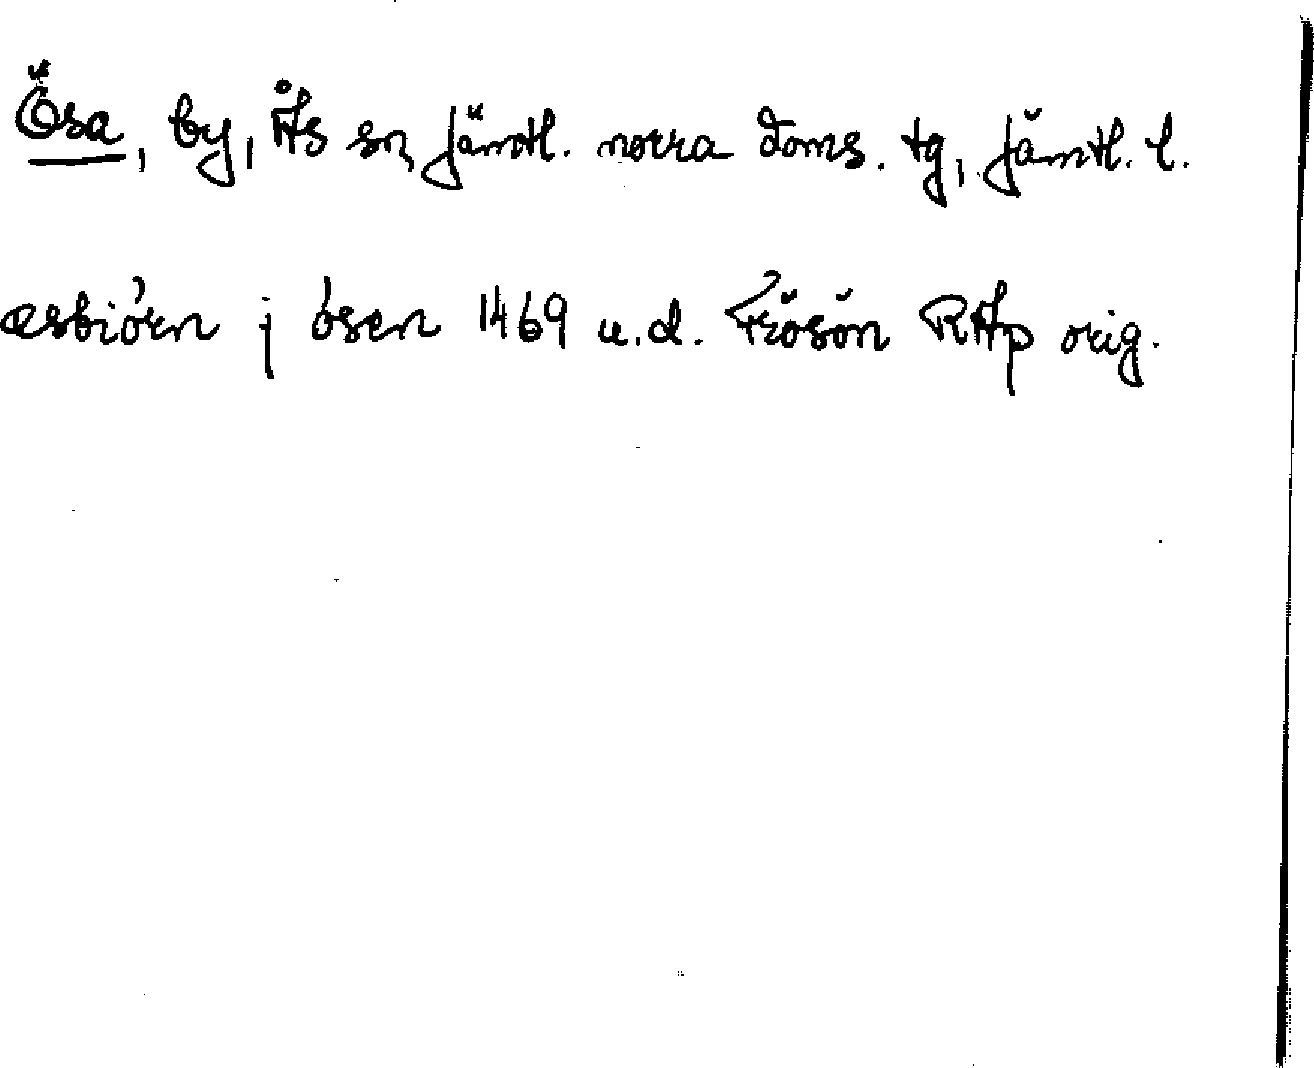 Ösa, by, Ås sn, Jämtl. norra doms. tg, Jämtl. l.
æsbiórn j ósen 1469 u.d. Frösön RAp orig.